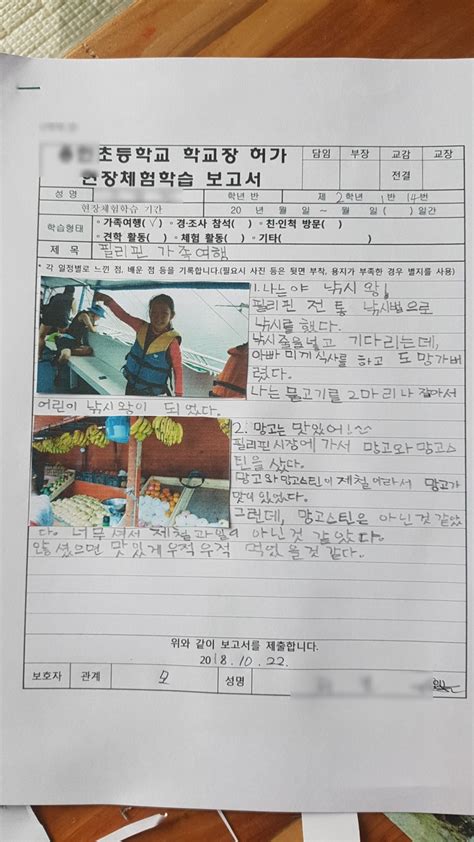 초등학교 학교장 허가
현장체험학습 보고서
담임 부장 교감 교장
전결
성 명 학년 반 제 2학년 1반 14번
현장체험학습 기간 20 년 월 일 ~ 월 일( )일간
학습형태 ∘ 가족여행(√) ∘ 경·조사 참석( ) ∘ 친·인척 방문( )
∘ 견학 활동( ) ∘ 체험 활동( ) ∘ 기타( )
제 목 필리핀 가족여행
* 각 일정별로 느낀 점, 배운 점 등을 기록합니다.(필요시 사진 등은 뒷면 부착, 용지가 부족한 경우 별지를 사용)
1. 나는야 낚시 왕!
필리핀 전통 낚시법으로
낚시를 했다.
낚시줄을 넣고 기다리는데,
아빠 미끼 식사를 하고 도망가버
렸다.
나는 물고기를 2마리나 잡아서
어린이 낚시왕이 되었다.
2. 망고는 맛있어!~
필리핀 시장에 가서 망고와 망고스
틴을 샀다.
망고와 망고스틴이 제철이라서 망고가
맛이 있었다.
그런데, 망고스틴은 아닌것 같았
다. 너무 셔서 제철과일이 아닌것 같았다.
않 셨으면 맛있게 우적우적 먹었을것 같다.
위와 같이 보고서를 제출합니다.
2018. 10. 22.
보호자 관계 모 성명